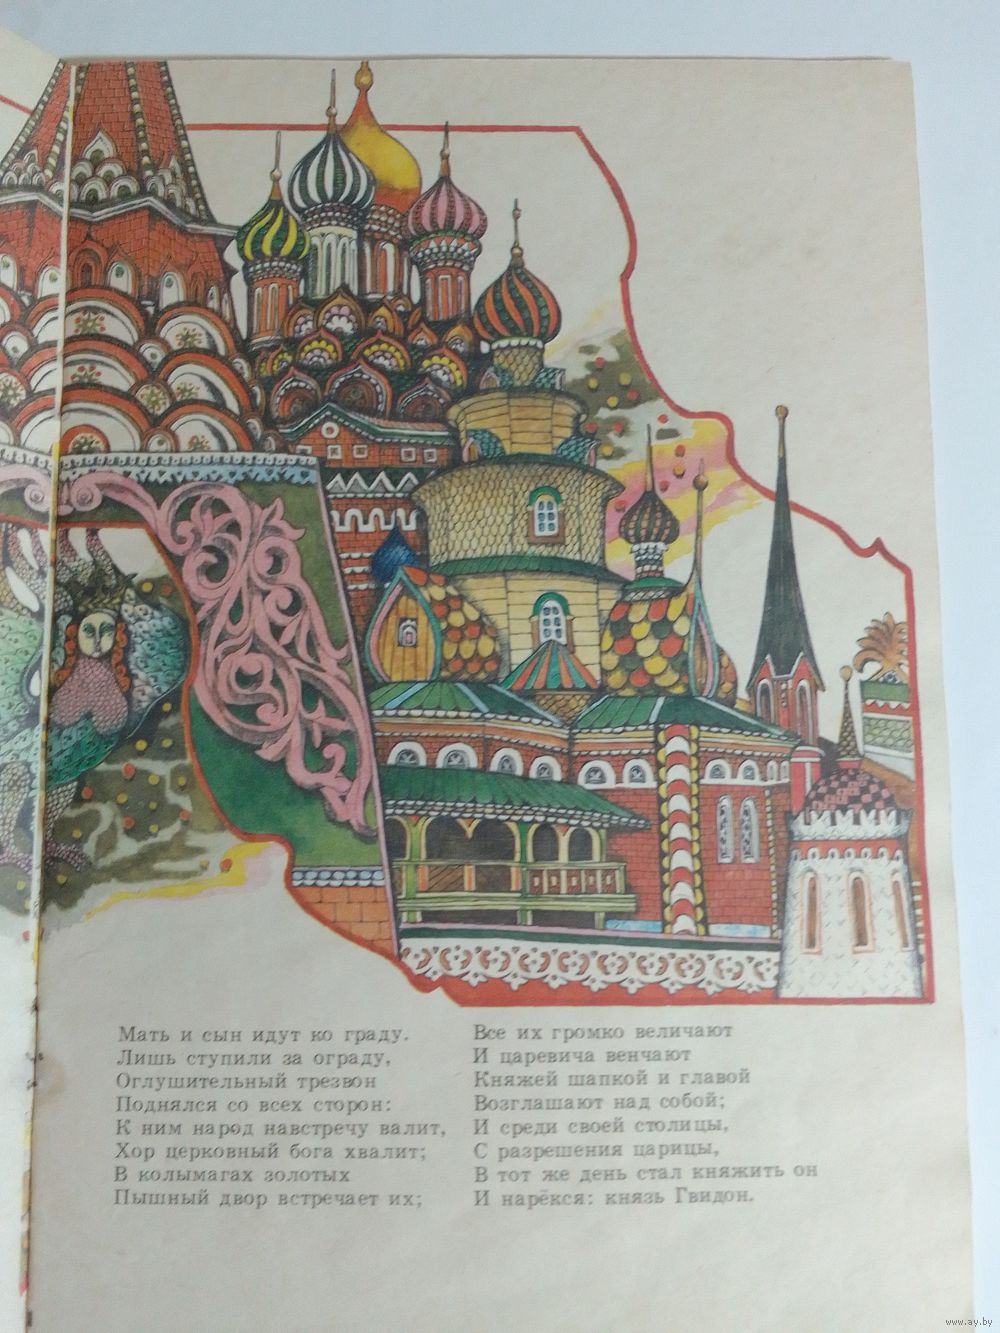 Мать и сын идут ко граду.
Лишь ступили за ограду,
Оглушительный трезвон
Поднялся со всех сторон:
К ним народ навстречу валит,
Хор церковный бога хвалит;
В колымагах золотых
Пышный двор встречает их;
Все их громко величают
И царевича венчают
Княжей шапкой и главой
Возглашают над собой;
И среди своей столицы,
С разрешения царицы,
В тот же день стал княжить он
И нарёкся: князь Гвидон.
www.ay.by